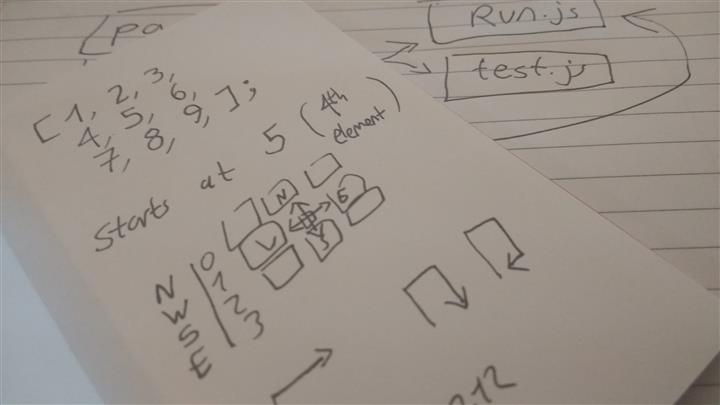 [pa
Run.js
test.js
[1, 2, 3,
4, 5, 6,
7, 8, 9, ];
Starts at 5 (4th
element)
N
E
S
N 0
W 1
S 2
E 3